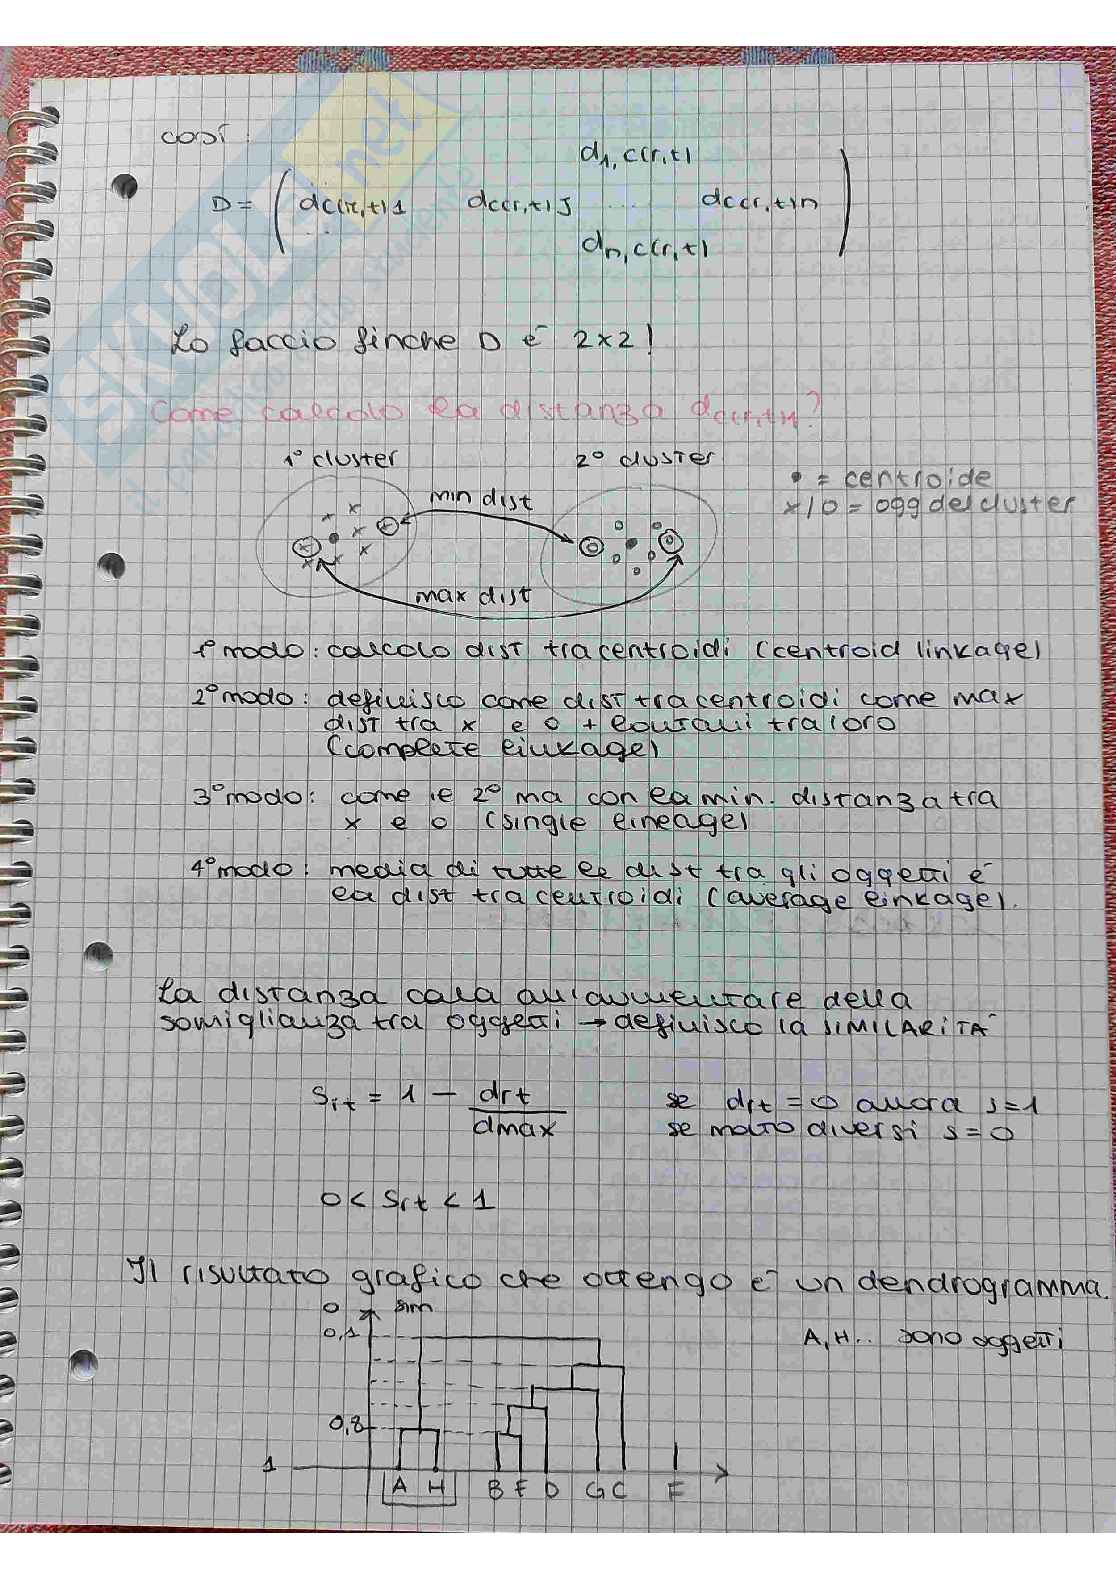 così:
d1,c(r,t)
D = ( dc(r,t)1 dc(r,t)J ... dc(r,t)n )
...
dn,c(r,t)
Lo faccio finche D è 2x2!
Come calcolo la distanza dc(r,t)?
1° cluster
2° cluster
min dist
• = centroide
x/o = ogg del cluster
max dist
1° modo: calcolo dist tra centroidi (centroid linkage)
2° modo: definisco come dist tra centroidi come max
dist tra x e o + lontani tra loro
(complete linkage)
3° modo: come il 2° ma con la min. distanza tra
x e o (single lineage)
4° modo: media di tutte le dist tra gli oggetti è
la dist tra centroidi (average linkage).
La distanza cala all'aumentare della
somiglianza tra oggetti → definisco la SIMILARITÀ
Srt = 1 - drt/dmax
se drt = 0 allora s=1
se molto diversi s=0
0 < Srt < 1
Il risultato grafico che ottengo è un dendrogramma.
0 sim
0,1
A,H.. sono oggetti
0,8
1
A H B E D G C F
SKUOLA.net